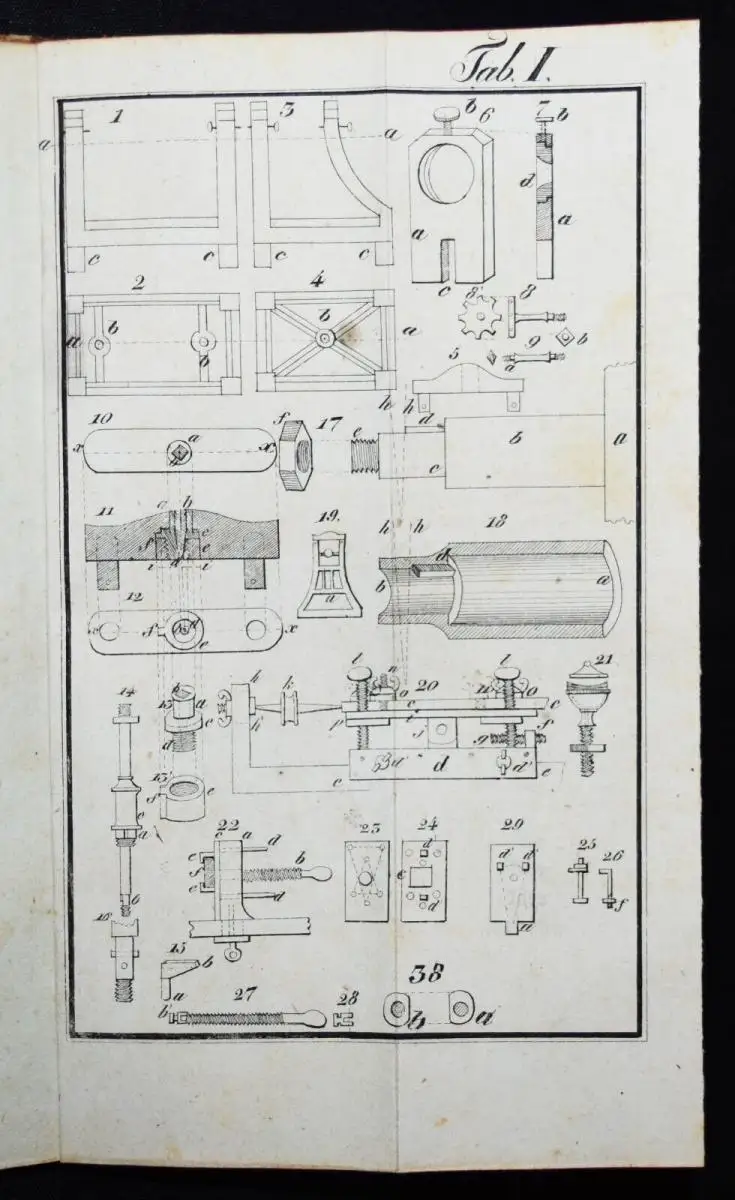 Tab. I.
1 3 b 6 7 b
a a d
a a
c c c c c
2 4 8' 8
a b b b a 9 b
a
5
h h
10 a f 17 e d b a
x x c
11 a b 19. h h 18
f c d
e b a
i d i a
12
d
f x
e
14 b l n 20 l 21
13 a h k o n o
c c c
d h' p i f
13' j g
f e d' d d'
e e e
a
22 23 24 29 25
c a d b d d' d' 26
e
f e
e d d f
b a
16
15
b 38
a
b' 27 28 b a